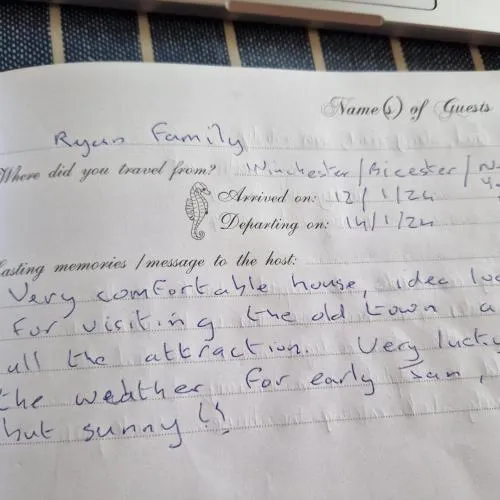 Name(s) of Guests
Ryan Family
Where did you travel from? Winchester / Bicester /
Arrived on: 12/1/24
Departing on: 14/1/24
Lasting memories / message to the host:
Very comfortable house, idea
for visiting the old town a
all the attraction. Very lucky
the weather for early Jan,
but sunny!!